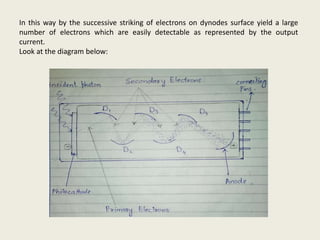 In this way by the successive striking of electrons on dynodes surface yield a large
number of electrons which are easily detectable as represented by the output
current.
Look at the diagram below:
incident Photon
Secondary Electrons
connecting
Pins
D1
D3
D5
D2
D4
Anode
Photocathode
Primary Electrons